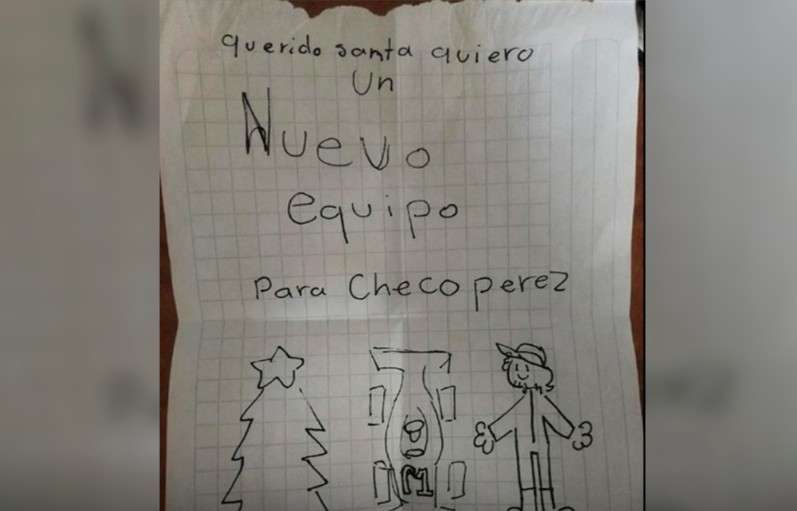 querido santa quiero
Un
Nuevo
equipo
Para Checo perez
M